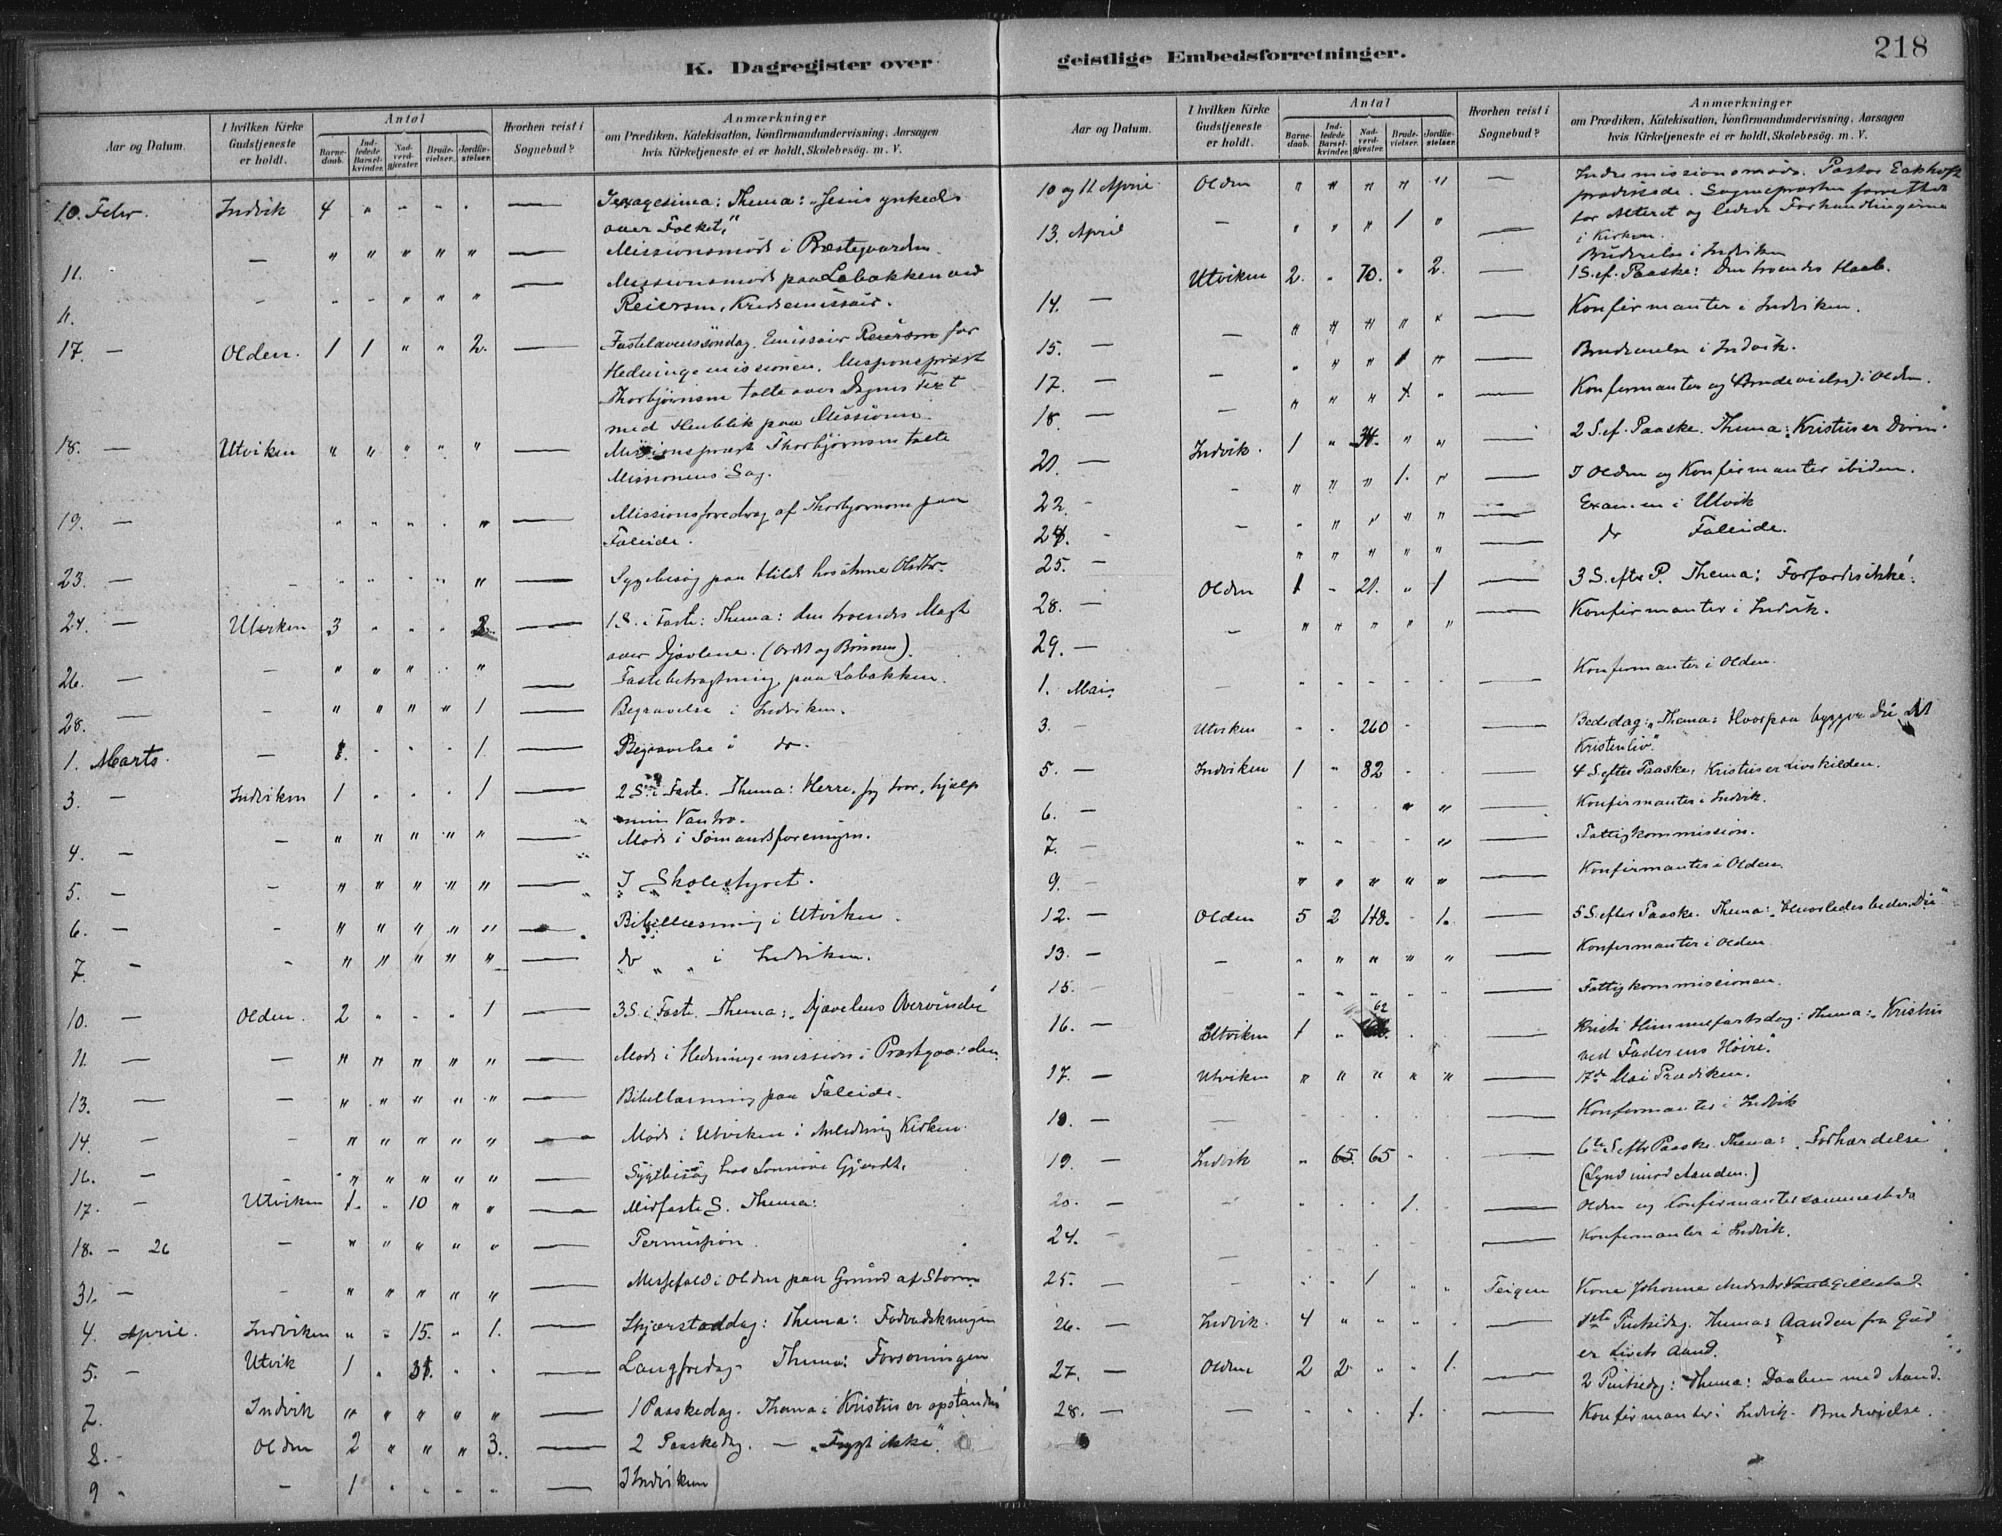 218
K. Dagregister over
Aar og Datum. I hvilken Kirke Gudstjeneste er holdt. Antal Barnedaab. Indledede Barselkvinder. Nadverdgjæster. Brudevielser. Jordfæstelser. Hvorhen reist i Sognebud? Anmærkninger om Prædiken, Katekisation, Konfirmandundervisning, Aarsagen hvis Kirketjeneste ei er holdt, Skolebesøg. m. V.
10. Febr. Indvik 4 " " " " — Sexagesima: Thema: "Jesus ynkedes
over Folket."
11. — " " " " " — Missionsmøde i Præstegaarden.
" " " " " — Missionsmøde paa Løbakken ved
Reiersen, Kredsemissær.
17. — Olden. 1 1 " " 2. — Fastelavenssøndag. Emissær Reiersen for
Hedningemissionen. Missionspræst
Thorbjørnsen talte over Dagens Text
med Henblik paa Missionen.
18. — Utviken " " " " " — Missionspræst Thorbjørnsen talte
Missionens Sag.
19. — " " " " " — Missionsforedrag af Thorbjørnsen paa
Faleide.
23. — " " " " " — Sygebesøg paa Hilde hos
24. — Utviken 3 " " " 2. — 1 S. i Faste: Thema: den troendes Magt
over Djævlene. (Ordet og Bønnen).
26. — — " " " " — Fastebetragtning paa Løbakken.
28. — — " " " " 1 — Begravelse i Indviken.
1. Marts. — 1. " " " 1. — Begravelse i do.
3. — Indviken 1 " " " 1 — 2 S. i Faste. Thema: Herre, jeg tror, hjælp
min Vantro.
4. — — " " " " " — Møde i Sømandsforeningen.
5. — — " " " " " — I Skolestyret.
6. — — " " " " " — Bibellæsning i Utviken.
7. — — " " " " " — do " " i Indviken.
10. — Olden. 2 " " " 1 — 3 S. i Faste. Thema: "Djævelens Overvinder"
11. — — " " " " " — Møde i Hedningemission i Præstgaarden.
13. — — " " " " " — Bibellæsning paa Faleide.
14. — — " " " " " — Møde i Utviken i Anledning Kirken.
16. — — " " " " " — Sygebesøg hos Gjerdt.
17. — Utviken 1. " 10 " " — Midfaste S. Thema:
18. — 26 — " " " " " — Permission.
31. — — " " " " " — Messefald i Olden paa Grund af Storm
4. April. Indviken " " 15. " 1. — Skjærstorsdag: Thema: Fodvadskningen
5. — Utvik 1 " 31. " " — Langfredag. Thema: Forsoningen.
7. Indvik " " " " " — 1 Paaskedag. Thema: Kristus er opstanden
8. — Olden 2 " " " 3. — 2 Paaskedag. — "Frygt ikke".
9 " — 1 " " " " I Indviken
geistlige Embedsforretninger.
Aar og Datum. I hvilken Kirke Gudstjeneste er holdt. Antal Barnedaab. Indledede Barselkvinder. Nadverdgjæster. Brudevielser. Jordfæstelser. Hvorhen reist i Sognebud? Anmærkninger om Prædiken, Katekisation, Konfirmandundervisning, Aarsagen hvis Kirketjeneste ei er holdt, Skolebesøg. m. V.
10 og 11 April Olden " " " " " — Indremissionsmøde. Pastor Eckhoff
prædikede. Sognepræsten forrettede
for Alteret og ledede Forhandlingerne
i Kirken.
13. April — " " " 1 " — Brudevielse i Indviken
14. — Utviken 2. " 70. " 2. — 1 S. ef. Paaske: Den troendes Haab.
15. — — " " " " " — Konfirmanter i Indviken.
17. — — " " " 1 " — Brudevielse i Indvik.
18. — — " " " 1. " — Konfirmanter og (Brudevielse) i Olden.
21. — Indvik. 1 " 34. " " — 2 S. ef. Paaske. Thema: Kristus er Døren.
22. — — " " " 1. " — I Olden og Konfirmanter ibiden.
24. — — " " " " " — Examen i Utvik
25. — " " " " " — do Faleide.
28. — Olden 1 " 21. " 1 — 3 S. efter P. Thema: Forfærdes ikke.
29. — — " " " " " — Konfirmanter i Indvik.
1. Mai. — " " " " " — Konfirmanter i Olden.
3. — Utviken " " 260 " " — Bededag: Thema: Hvorpaa bygger Du dit
Kristenliv".
5. — Indviken 1 " 82 " " — 4 S. efter Paaske; Kristus er Livskilden.
6. — " " " " " — Konfirmanter i Indvik.
7. — " " " " " — Fattigkommission.
9. — " " " " " — Konfirmanter i Olden.
12. — Olden 5 2 48. " 1. — 5 S. efter Paaske. Thema: "Hvorledes beder Du"
13. — — " " " " " — Konfirmanter i Olden
15. — " " " " " — Fattigkommissionen.
16. — Utviken 1 " 62 " " — Kristi Himmelfartsdag: Thema: "Kristus
ved Faderens Høire".
17. — Utviken " " " " " — 17de Mai Prædiken.
18. — — " " " " " — Konfirmanter i Indvik
19. — Indvik " 65. 65 " " — 6te S. efter Paaske. Thema: "Forhærdelse"
(Synd imod Aanden.)
20. — — " " " 1. " — Olden og Konfirmanter sammesteds
24. — — " " " " " — Konfirmanter i Indvik.
25. — — " " " 1 " " Teigen Kone Johanne
26. — Indvik. 4 " " " " — 1ste Pintsedag. Thema: Aanden fra Gud
er Livets Aand.
27. — Olden 2 2 " " 1. — 2 Pintsedag: Thema: Daaben med Aand.
28. — — " " " 1. " — Konfirmanter i Indvik. Brudevielse.